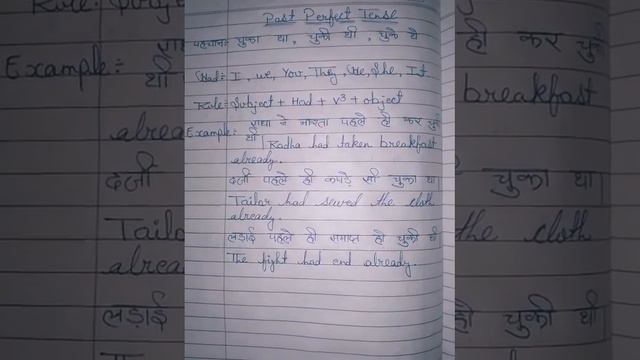 Past Perfect Tense
पहचान:- चुका था, चुकी थी, चुके थे
Had:- I, we, You, They, He, She, It
Rule:- Subject + Had + v³ + object
राधा ने नाश्ता पहले ही कर चुकी
Example:- थी। Radha had taken breakfast
already.
दर्जी पहले ही कपड़े सी चुका था।
Tailor had sewed the cloth
already.
लड़ाई पहले ही समाप्त हो चुकी थी
The fight had end already.